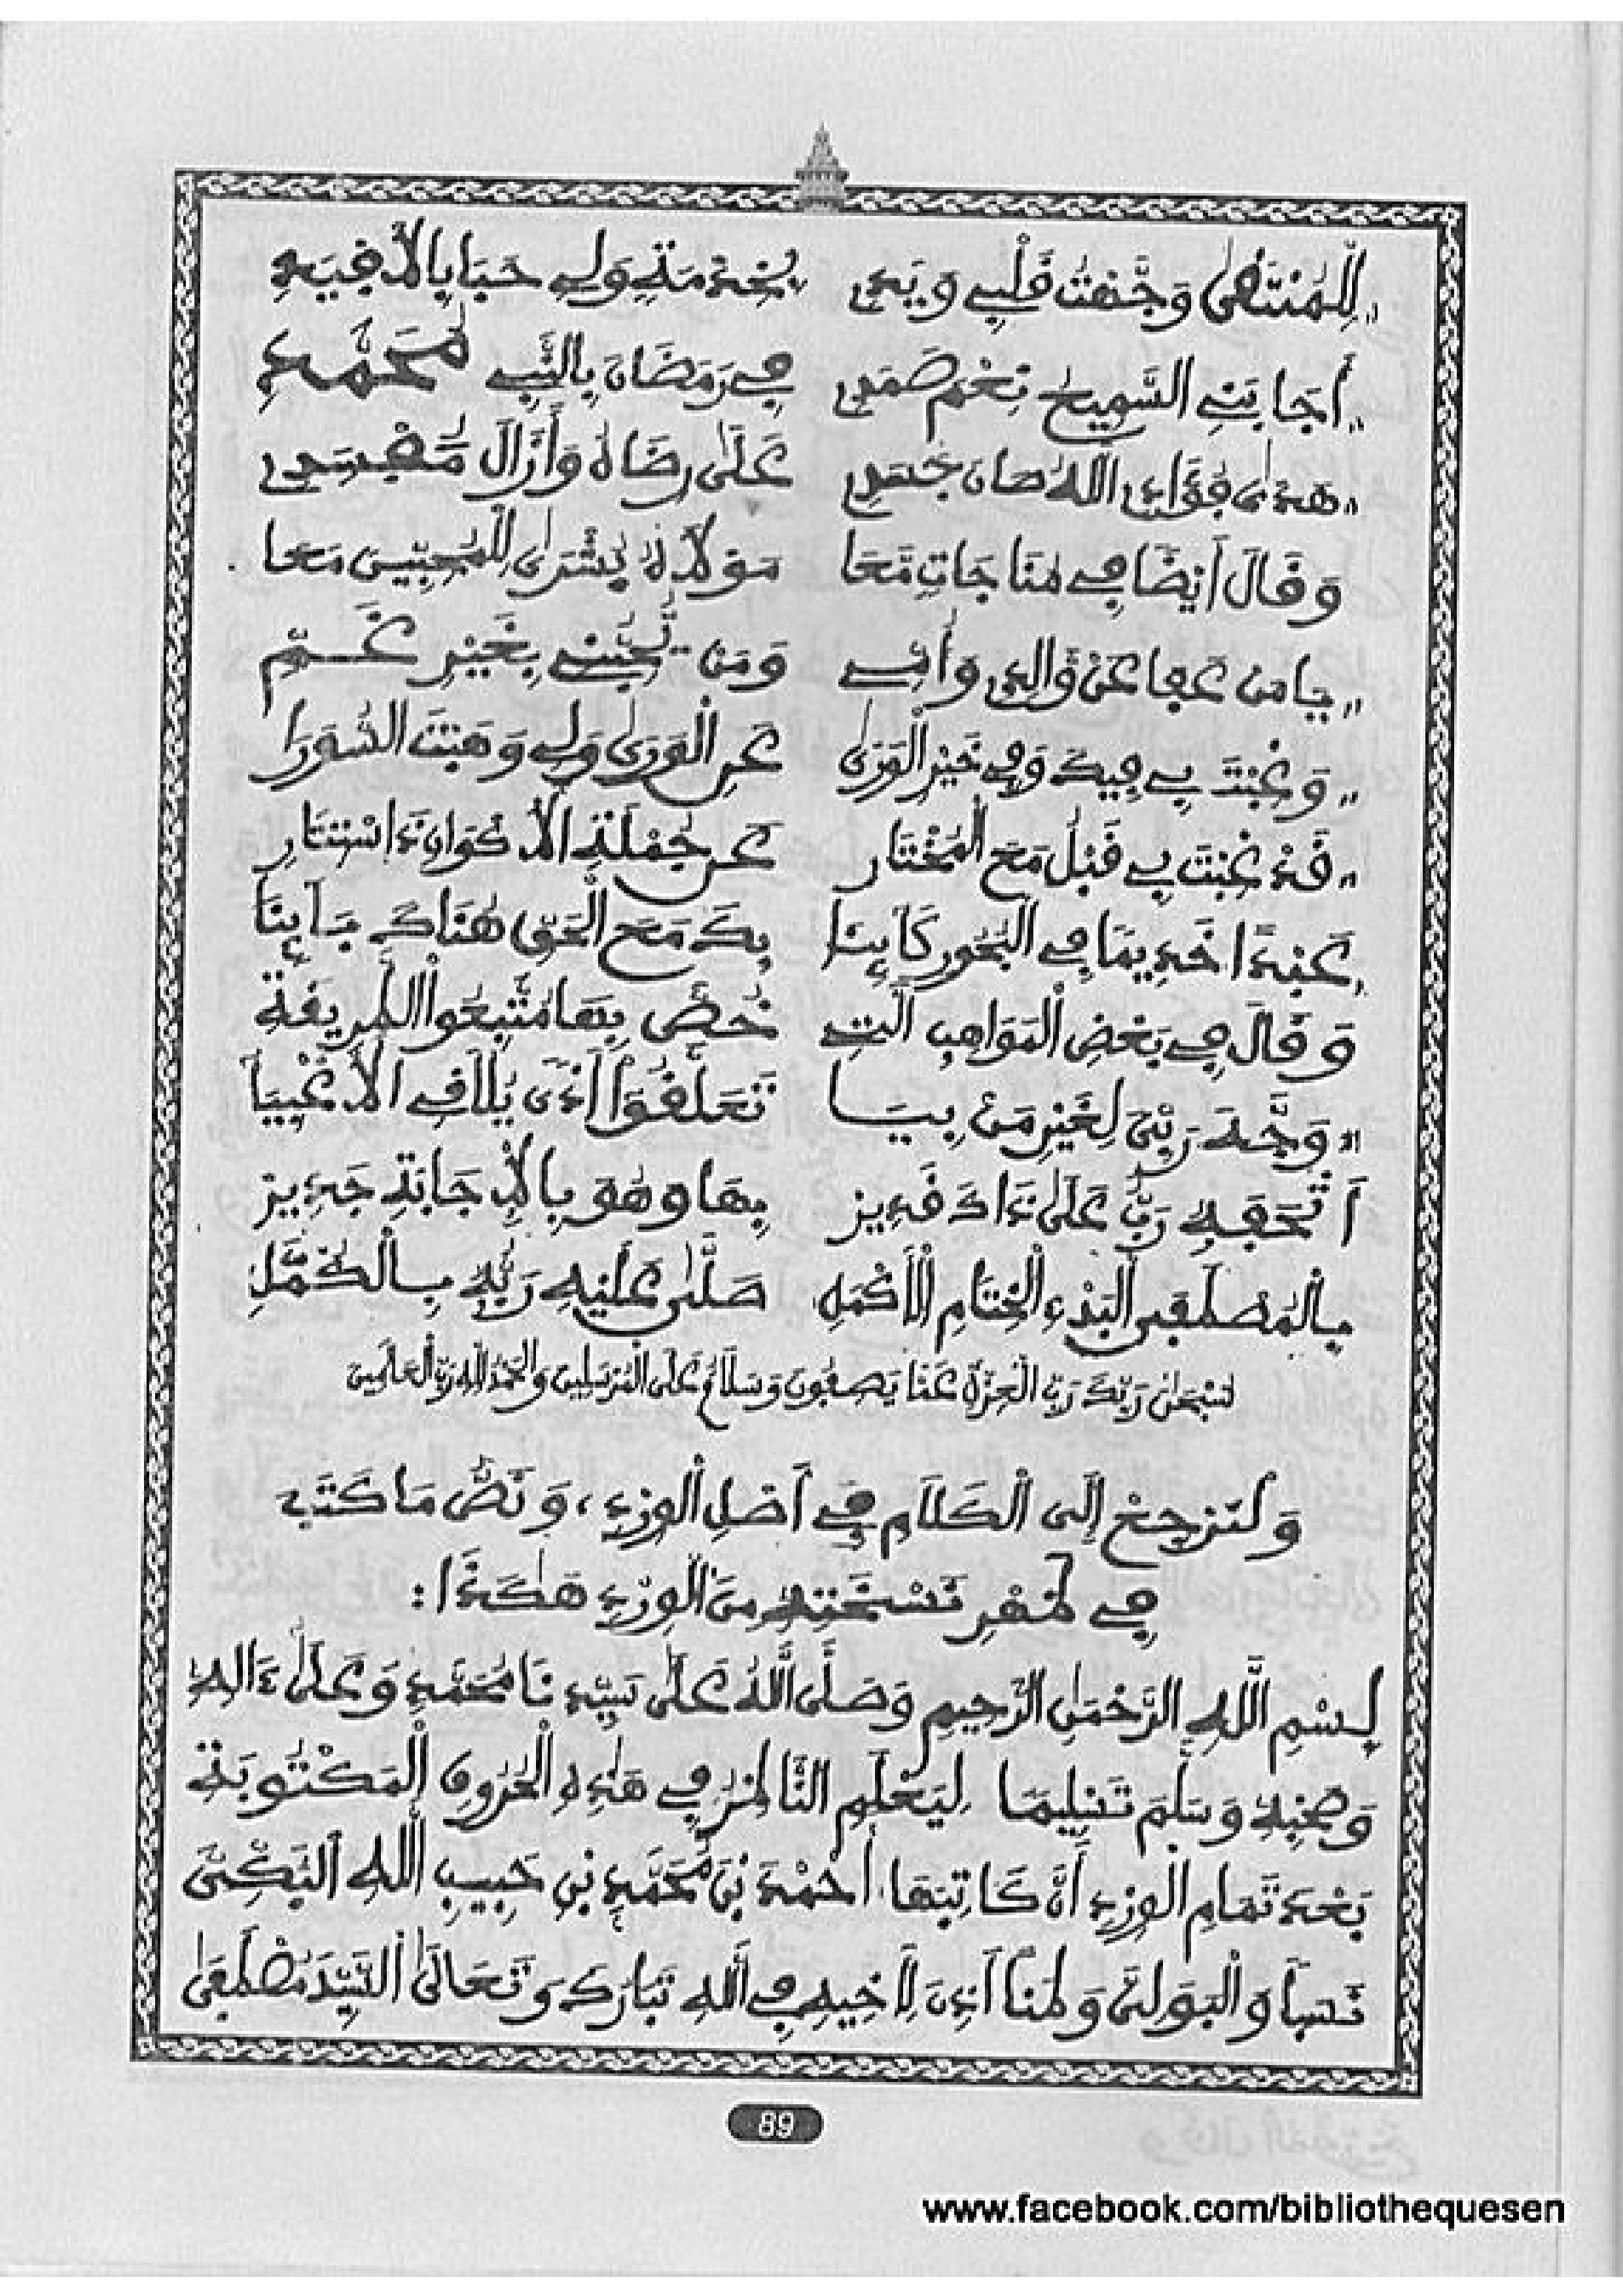 "لِلْمُنْتَهَى وَجَّهْتُ قَلْبِي وَيَدِي بِخِدْمَةٍ وَلِي حَبَا بِالْأَفْيَدِ
"أَجَابَنِي السَّمِيعُ نِعْمَ صَمَدِي فِي رَمَضَانَ بِالنَّبِي مُحَمَّدِ
"هَدَى فُؤَادِي اللَّهُ صَانَ جَسَدِي عَلَى رِضَاهُ وَأَزَالَ مُفْسِدِي
وَقَالَ أَيْضًا فِي مُنَاجَاتٍ مَعَا مَوْلَاهُ بُشْرَى لِلْمُحِبِّينَ مَعَا
"يَا مَنْ عَفَا عَنْ وَالِدِي وَأُمِّي وَمَنْ يُجِيبُنِي بِغَيْرِ غَمِّ
"وَغِبْتَ بِي فِيكَ وَفِي خَيْرِ الْوَرَى عَنِ الْوَرَى وَلِي وَهَبْتَ السُّوَرَا
"قَدْ غِبْتَ بِي قَبْلُ مَعَ الْمُخْتَارِ عَنْ جُمْلَةِ الْأَكْوَانِ ذَا اسْتِتَارِ
عَبْدًا خَدِيمًا فِي الْبُحُورِ كَائِنَا بِكَ مَعَ الْحَقِّ هُنَاكَ بَائِنَا
وَقَالَ فِي بَعْضِ الْمَوَاهِبِ الَّتِي خُصَّ بِهَا مُتَّبِعُوا الطَّرِيقَةِ
"وَجَّهَ رَبِّي لِغَيْرِ مَنْ بِيَا تَعَلَّقُوا أَذًى يُلَاقِي الْأَغْبِيَا
أَتْحَفَهُ رَبٌّ عَلَى ذَاكَ قَدِيرْ بِهَا وَهُوَ بِالْإِجَابَةِ جَدِيرْ
بِالْمُصْطَفَى الْبَدْءِ الْخِتَامِ الْأَكْمَلِ صَلَّى عَلَيْهِ رَبُّهُ بِالْكُمَّلِ
سُبْحَانَ رَبِّكَ رَبِّ الْعِزَّةِ عَمَّا يَصِفُونَ وَسَلَامٌ عَلَى الْمُرْسَلِينَ وَالْحَمْدُ لِلَّهِ رَبِّ الْعَالَمِينَ
وَلْنَرْجِعْ إِلَى الْكَلَامِ فِي أَصْلِ الْوِرْدِ، وَنَصُّ مَا كَتَبَ
فِي ظَهْرِ نُسْخَتِهِ مِنَ الْوِرْدِ هَكَذَا:
بِسْمِ اللَّهِ الرَّحْمَنِ الرَّحِيمِ وَصَلَّى اللَّهُ عَلَى سَيِّدِنَا مُحَمَّدٍ وَعَلَى ءَالِهِ
وَصَحْبِهِ وَسَلَّمَ تَسْلِيمًا لِيَعْلَمِ النَّاظِرُ فِي هَذِهِ الْحُرُوفِ الْمَكْتُوبَةِ
بَعْدَ تَمَامِ الْوِرْدِ أَنَّ كَاتِبَهَا أَحْمَدَ بْنَ مُحَمَّدِ بْنِ حَبِيبِ اللَّهِ الْبَكِّيَّ
نَسَبًا وَالْبَوَلِيَّ وَطَنًا أَذِنَ لِأَخِيهِ فِي اللَّهِ تَبَارَكَ وَتَعَالَى السَّيِّدِ مُصْطَفَى
89
www.facebook.com/bibliothequesen